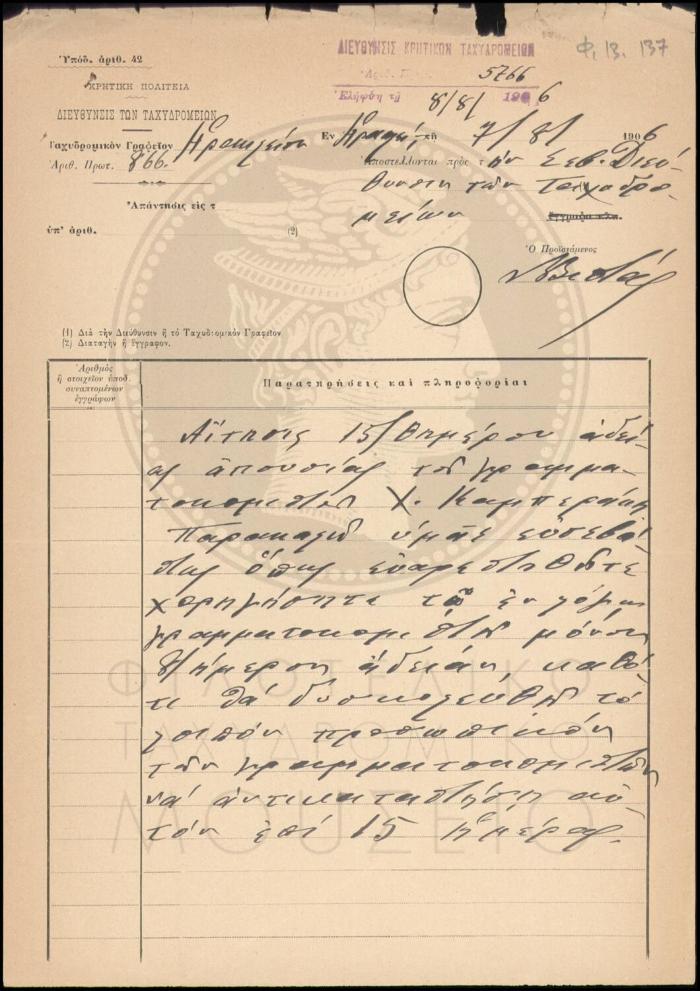 Ὑπόδ. ἀριθ. 42
ΚΡΗΤΙΚΗ ΠΟΛΙΤΕΙΑ
ΔΙΕΥΘΥΝΣΙΣ ΤΩΝ ΤΑΧΥΔΡΟΜΕΙΩΝ
Ταχυδρομικὸν Γραφεῖον Ἡρακλείου
Ἀριθ. Πρωτ. 866.
Ἀπάντησις εἰς τ
ὑπ' ἀριθ. (2)
ΔΙΕΥΘΥΝΣΙΣ ΚΡΗΤΙΚΩΝ ΤΑΧΥΔΡΟΜΕΙΩΝ
Ἀριθ. Πρωτ. 5766
Ἐλήφθη τῇ 8/8/ 1906
Φ. 13. 137
Ἐν Ἡρακλεί, τῇ 7/8/ 1906
Ἀποστέλλονται πρὸς τὴν Σεβ. Διεύ-
θυνσιν τῶν Ταχυδρο-
μείων
ἔγγραφα κλπ.
Ὁ Προϊστάμενος
(1) Διὰ τὴν Διεύθυνσιν ἢ τὸ Ταχυδρομικὸν Γραφεῖον
(2) Διαταγὴν ἢ Ἔγγραφον.
Ἀριθμὸς
ἢ στοιχεῖον ὑποδ.
συναπτομένων
ἐγγράφων
Παρατηρήσεις καὶ πληροφορίαι
Αἴτησις 15/θημέρου ἀδεί-
ας ἀπουσίας τοῦ γραμμα-
τοκομιστοῦ Χ. Καμπεράκη
Παρακαλῶ ὑμᾶς εὐσεβά-
στως ὅπως εὐαρεστηθῆτε
χορηγήσητε τῷ ἐν λόγῳ
γραμματοκομιστῇ μόνον
8/ήμερον ἄδειαν, καθό-
τι θὰ δυσκολευθῇ τὸ
λοιπὸν προσωπικὸν
τῶν γραμματοκομιστῶν
νὰ ἀντικαταστήσῃ αὐ-
τὸν ἐπὶ 15 ἡμέρας.
ΦΙΛΟΤΕΛΙΚΟ
ΤΑΧΥΔΡΟΜΙΚΟ
ΜΟΥΣΕΙΟ